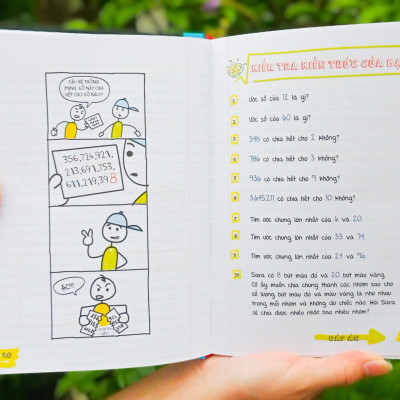 CẬU BÉ THÔNG
MINH, SỐ NÀY CHIA
HẾT CHO SỐ NÀO?
356,724,921,
213,691,753,
611,219,398
2!
ÁC!!!
KIỂM TRA KIẾN THỨC CỦA BẠ
1 Ước số của 12 là gì?
2 Ước số của 60 là gì?
3 398 có chia hết cho 2 không?
4 786 có chia hết cho 3 không?
5 936 có chia hết cho 9 không?
6 3.645.211 có chia hết cho 10 không?
7 Tìm ước chung lớn nhất của 6 và 20.
8 Tìm ước chung lớn nhất của 33 và 74.
9 Tìm ước chung lớn nhất của 24 và 96.
10 Sara có 8 bút màu đỏ và 20 bút màu vàng.
Cô ấy muốn chia chúng thành các nhóm sao cho
số lượng bút màu đỏ và màu vàng là như nhau
trong mỗi nhóm và không dư chiếc nào. Hỏi Sara
sẽ chia được nhiều nhất bao nhiêu nhóm?
ĐÁP ÁN